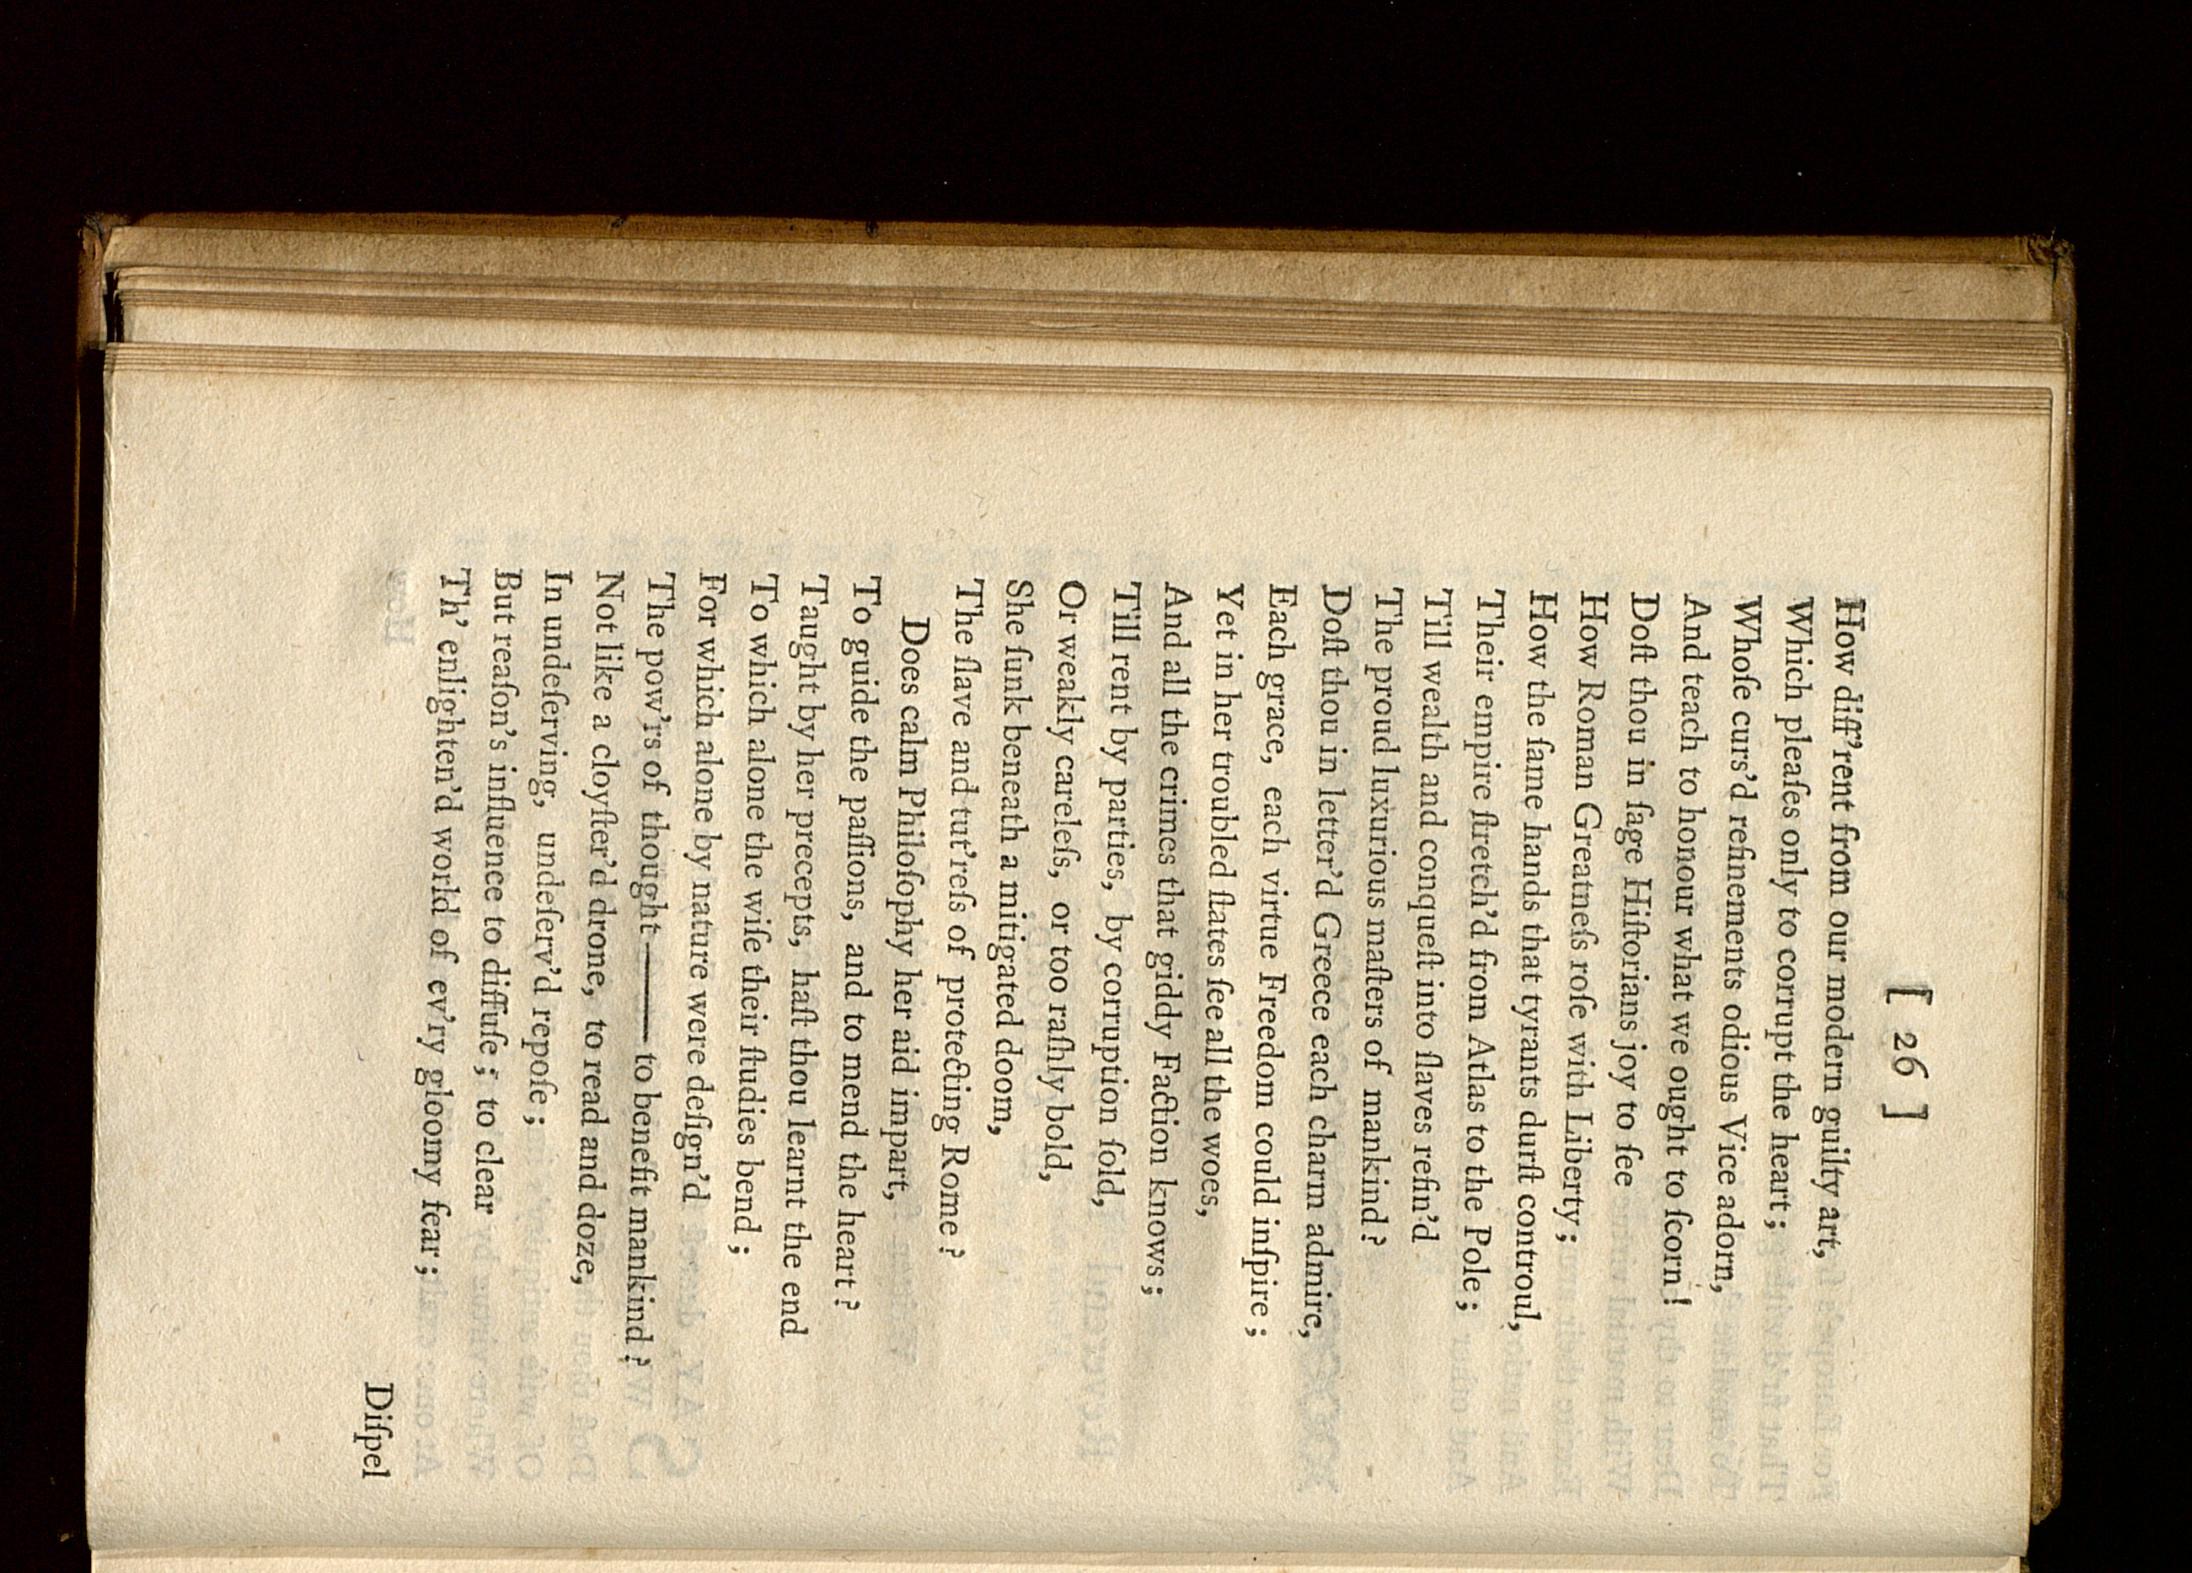 [ 26 ]
How diff'rent from our modern guilty art,
Which pleaſes only to corrupt the heart;
Whoſe curs'd refinements odious Vice adorn,
And teach to honour what we ought to ſcorn!
Doſt thou in ſage Hiſtorians joy to ſee
How Roman Greatneſs roſe with Liberty;
How the ſame hands that tyrants durſt controul,
Their empire ſtretch'd from Atlas to the Pole;
Till wealth and conqueſt into ſlaves refin'd
The proud luxurious maſters of mankind?
Doſt thou in letter'd Greece each charm admire,
Each grace, each virtue Freedom could inſpire;
Yet in her troubled ſtates ſee all the woes,
And all the crimes that giddy Faction knows;
Till rent by parties, by corruption ſold,
Or weakly careleſs, or too raſhly bold,
She ſunk beneath a mitigated doom,
The ſlave and tut'reſs of protecting Rome?
Does calm Philoſophy her aid impart,
To guide the paſſions, and to mend the heart?
Taught by her precepts, haſt thou learnt the end
To which alone the wiſe their ſtudies bend;
For which alone by nature were deſign'd
The pow'rs of thought —— to benefit mankind?
Not like a cloyſter'd drone, to read and doze,
In undeſerving, undeſerv'd repoſe;
But reaſon's influence to diffuſe; to clear
Th' enlighten'd world of ev'ry gloomy fear;
Diſpel